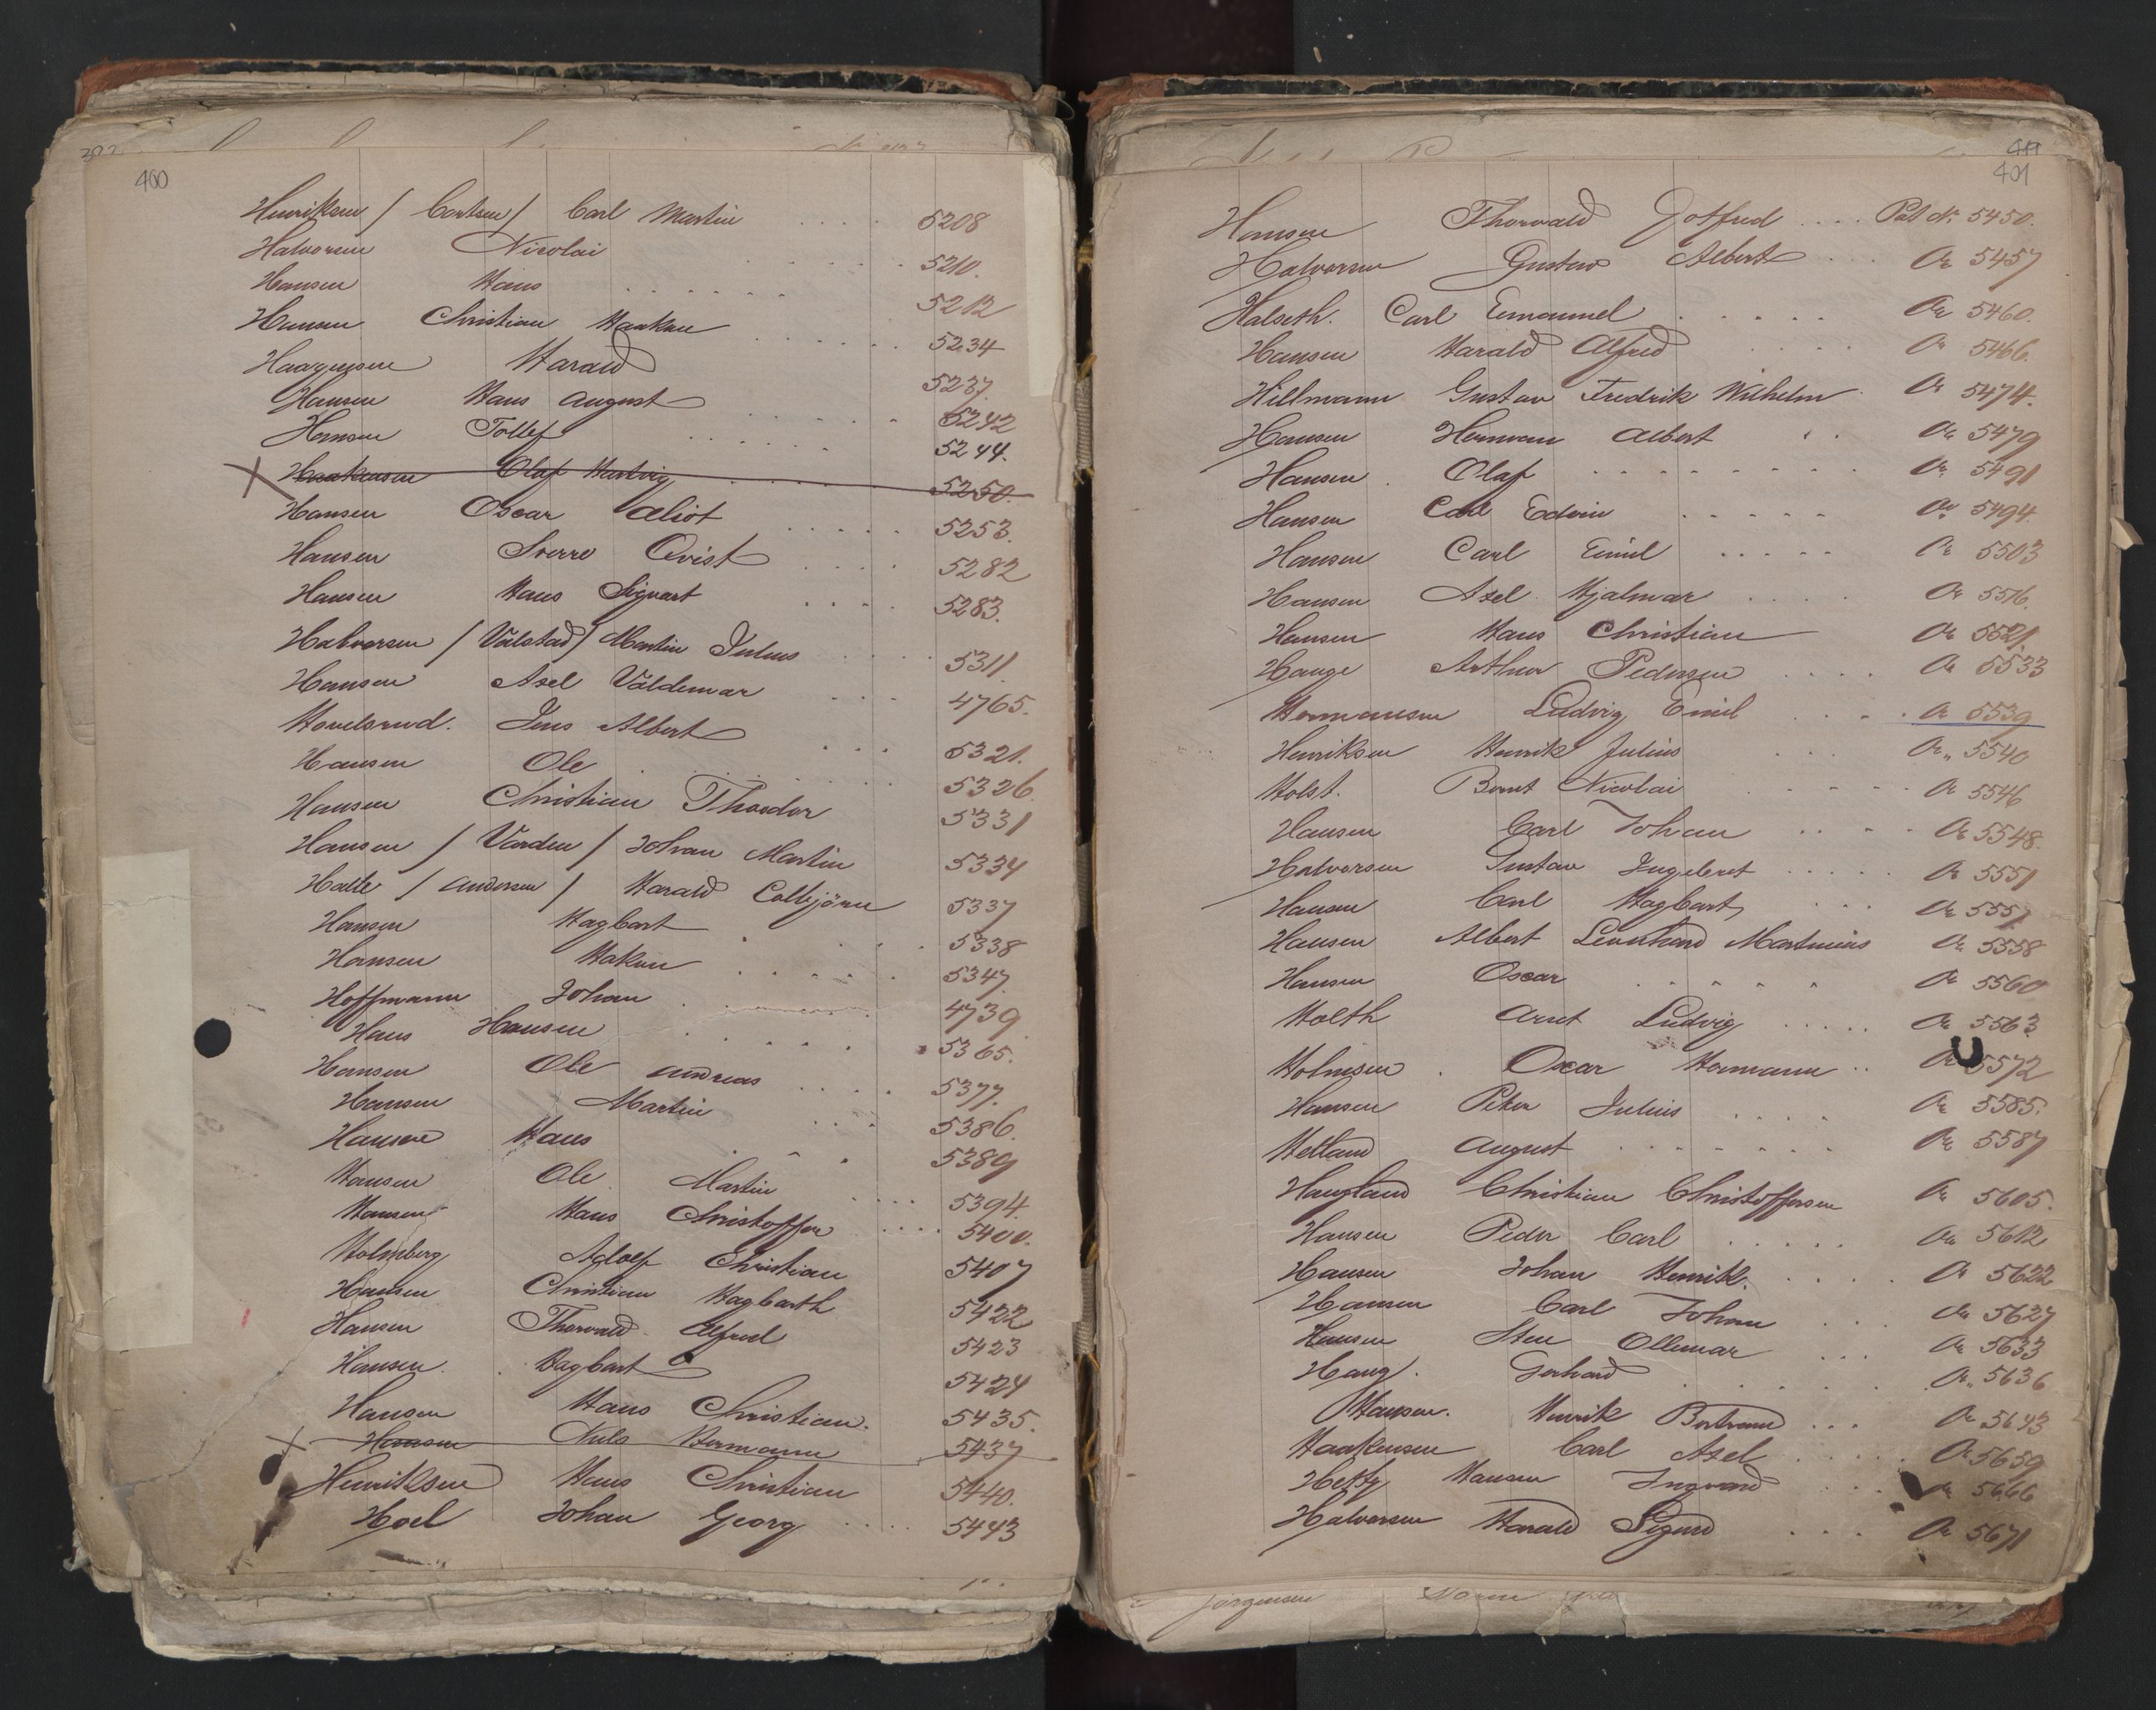 400
Henriksen / Carlsen / Carl Martin 5208
Halvorsen Nicolai 5210.
Hansen Hans 5212
Hansen Christian Haakon 5234
Haagensen Harald 5237.
Hansen Hans August 5242
Hansen Tollef 5244.
Haakensen Olaf Hartvig 5250.
Hansen Oscar Eliot 5253.
Hansen Sverre Qvist 5282
Hansen Hans Sigvart 5283.
Halvorsen / Valstad / Martin Julius 5311.
Hansen Axel Valdemar 4765.
Hovelsrud. Jens Albert 5321.
Hansen Ole 5326.
Hansen Christian Theodor 5331
Hansen / Varden / Johan Martin 5334
Andersen / Harald 5337
Hansen Hagbart 5338
Hansen Hakon 5347.
Hoffmann Johan 4739.
Hans Hansen 5365.
Hansen Ole Andreas 5377.
Hansen Martin 5386.
Hansen Hans 5389
Hansen Ole Martin 5394.
Hansen Hans Christoffer 5400.
Holmberg Adolf Christian 5407
Hansen Christian Hagbarth 5422
Hansen Thorvald Alfred 5423
Hansen. Hagbart 5424
Hansen Hans Christian. 5435.
Hansen Nils Hermann 5437
Henriksen Hans Christian 5440.
Hoel Johan Georg 5443
401
Hansen Thorvald Gotfred Pat No. 5450.
Halvorsen Gustav Albert 5457
Halseth. Carl Emanuel 5460.
Hansen Harald Alfred 5466.
Hillmann Gustav Fredrik Wilhelm 5474.
Hansen Herman Albert 5479
Hansen Olaf 5491
Hansen Carl Edvin 5494.
Hansen Carl Emil 5503
Hansen Axel Hjalmar 5516.
Hansen Hans Christian 5521.
Hauge Arthur Pedersen 5533
Hermansen Ludvig Emil 5539
Henriksen Henrik Julius 5540
Holst. Bernt Nicolai 5546
Hansen Carl Johan 5548.
Halvorsen Gustav Ingebret 5551
Hansen Carl Hagbart
Hansen Albert Leonhard Martinius 5558
Hansen Oscar 5560
Holth Arnt Ludvig 5563
Holmsen Oscar Hermann 5572
Hansen Peter Julius 5585.
Helland August 5587
Haugland Christian Christoffersen 5605.
Hansen Peder Carl 5612
Hansen Johan Henrik. 5622
Hansen Carl Johan 5627
Hansen Sten Ollemar 5633
Haug. Gerhard 5636
Hansen. Henrik Bertrand 5643
Haakensen Carl Axel 5659
Hansen Ingvard 5666
Halvorsen Harald Sigurd 5671
Jörgensen